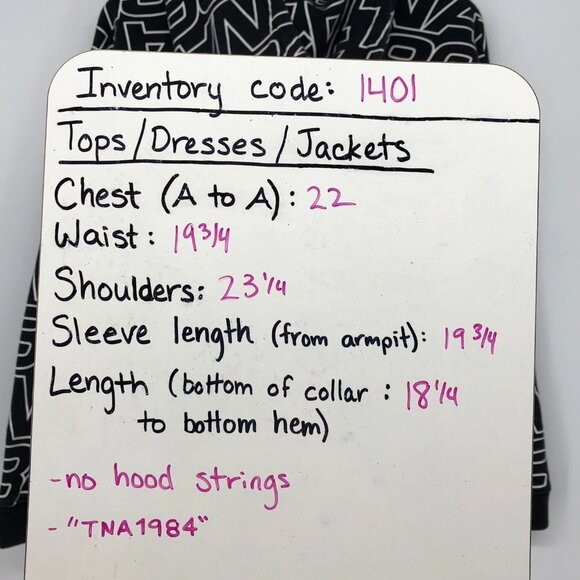 Inventory code: 1401
Tops/Dresses/Jackets
Chest (A to A): 22
Waist: 19 3/4
Shoulders: 23 1/4
Sleeve length (from armpit): 19 3/4
Length (bottom of collar : 18 1/4
to bottom hem)
-no hood strings
- "TNA1984"